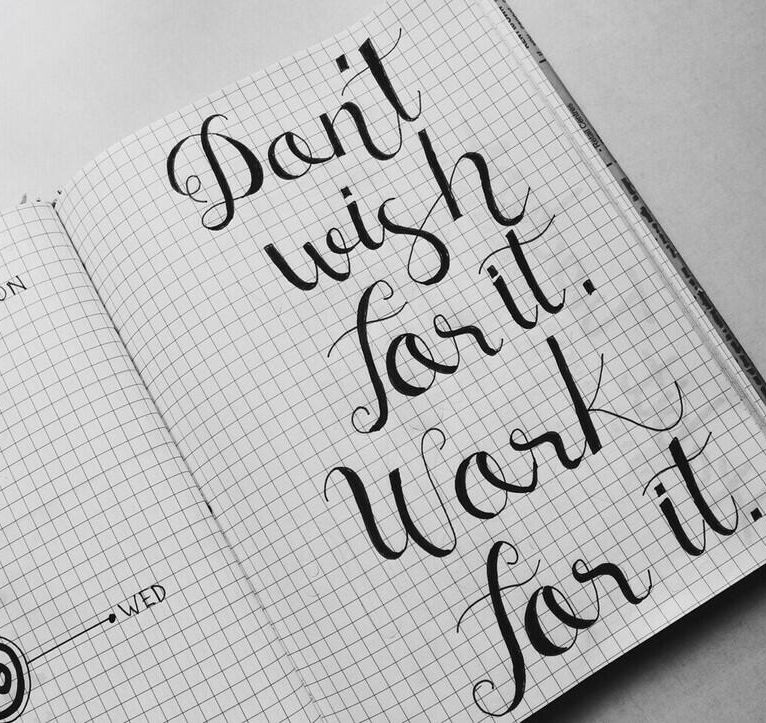 Don't
wish
for it.
Work
for it.
ON
WED